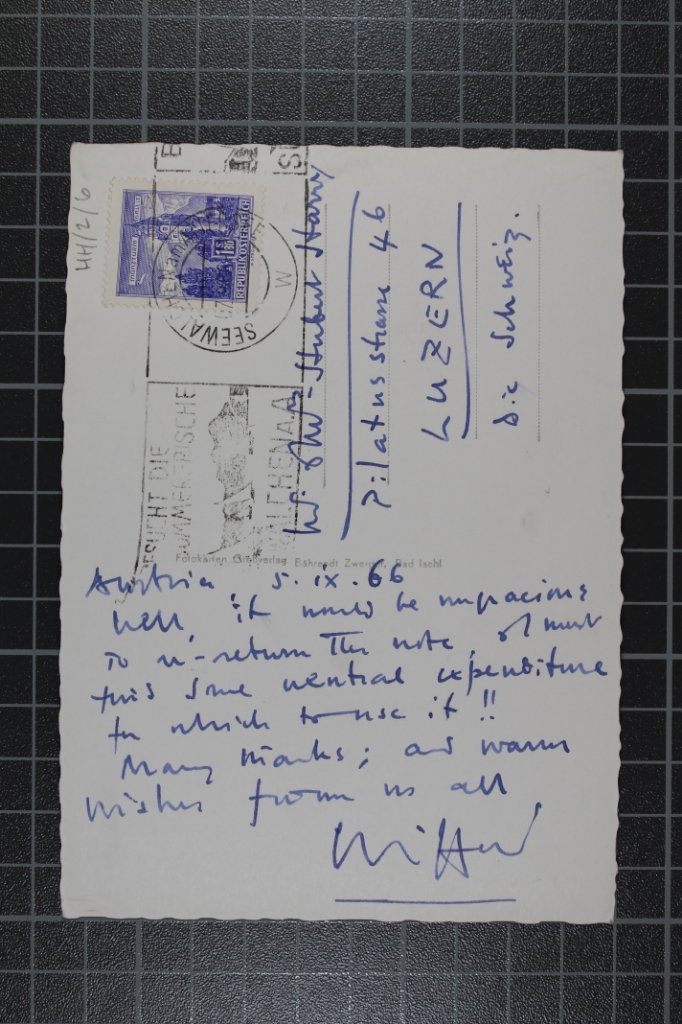 HH/2/6
REPUBLIK ÖSTERREICH
SEEWALCHEN AM ATTERSEE
BESUCHT DIE
SOMMERFRISCHE
Hubert Harry
Pilatusstrasse 46
LUZERN
Die Schweiz.
Fotokarten Großverlag Bährendt Zwerger, Bad Ischl
Austria 5. ix. 66
Well, it would be ungracious
to re-return the note, I must
find some neutral expenditure
for which to use it!!
Many thanks; and warm
wishes from us all
Wilfred